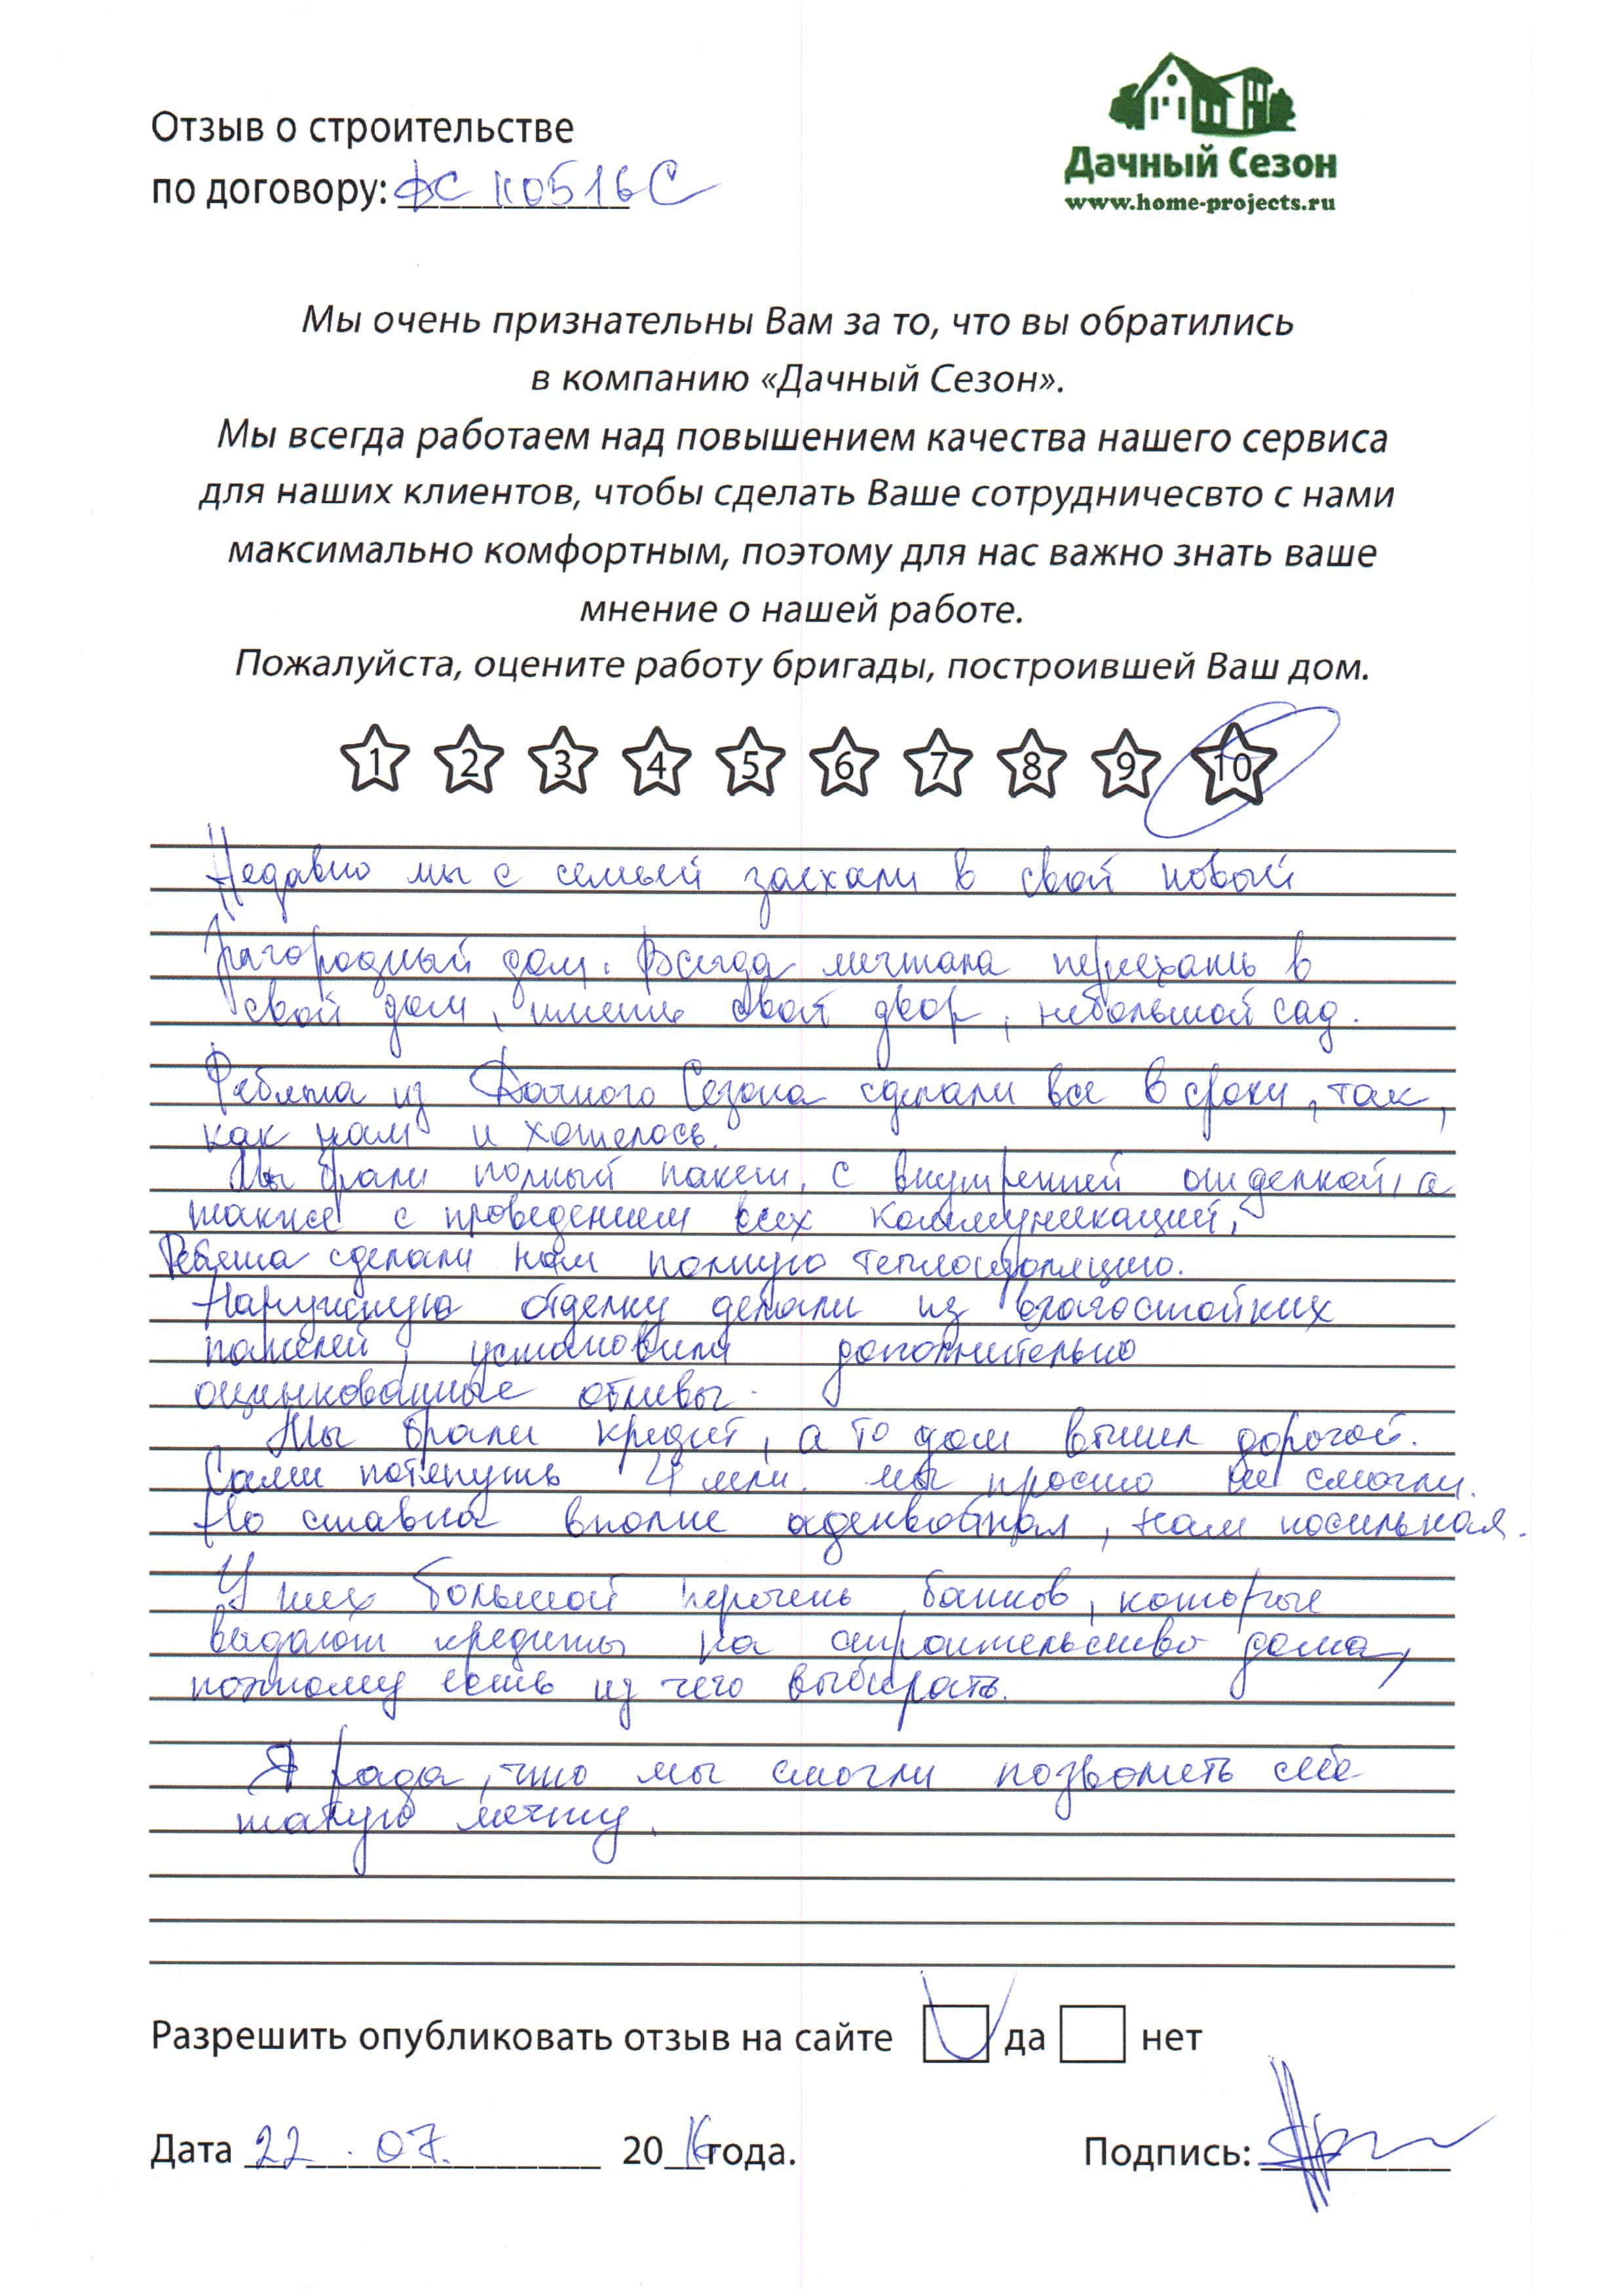 Отзыв о строительстве
по договору: ДС 110516 С
Дачный Сезон
www.home-projects.ru
Мы очень признательны Вам за то, что вы обратились
в компанию «Дачный Сезон».
Мы всегда работаем над повышением качества нашего сервиса
для наших клиентов, чтобы сделать Ваше сотрудничесвто с нами
максимально комфортным, поэтому для нас важно знать ваше
мнение о нашей работе.
Пожалуйста, оцените работу бригады, построившей Ваш дом.
1 2 3 4 5 6 7 8 9 10
Недавно мы с семьей заехали в свой новый
Загородный дом. Всегда мечтала переехать в
свой дом, иметь свой двор, небольшой сад.
Ребята из Дачного Сезона сделали все в сроки, так,
как нам и хотелось.
Мы брали полный пакет, с внутренней отделкой, а
также с проведением всех коммуникаций,
Ребята сделали нам полную теплоизоляцию.
Наружную отделку делали из влагостойких
панелей, установили дополнительно
оцинкованные отливы.
Мы брали кредит, а то дом вышел дорогой.
Сами потянуть 4 млн. мы просто не смогли.
Но ставка вполне адекватная, нам посильная.
У них большой перечень банков, которые
выдают кредиты на строительство дома,
поэтому есть из чего выбирать.
Я рада, что мы смогли позволить себе
такую мечту.
Разрешить опубликовать отзыв на сайте да нет
Дата 22.07. 2016 года. Подпись: